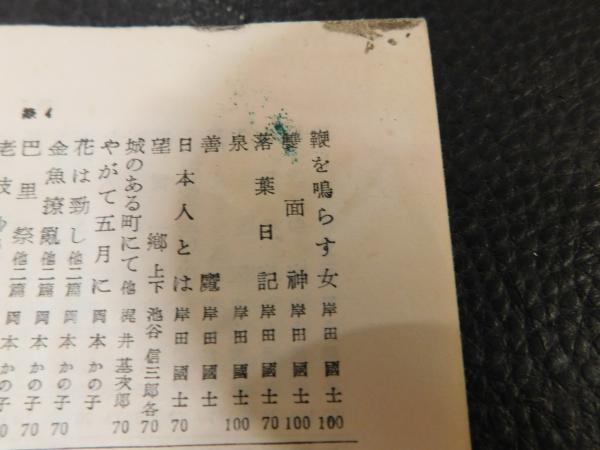 鞭を鳴らす女 岸田國士 100
雙面神 岸田國士 100
落葉日記 岸田國士 70
泉 岸田國士 100
善魔 岸田國士
日本人とは 岸田國士 70
望郷 上下 池谷信三郎 各70
城のある町にて 他 梶井基次郎 70
やがて五月に 岡本かの子
花は勁し 他二篇 岡本かの子 70
金魚撩亂 他二篇 岡本かの子 70
巴里祭 他二篇 岡本かの子 70
老妓